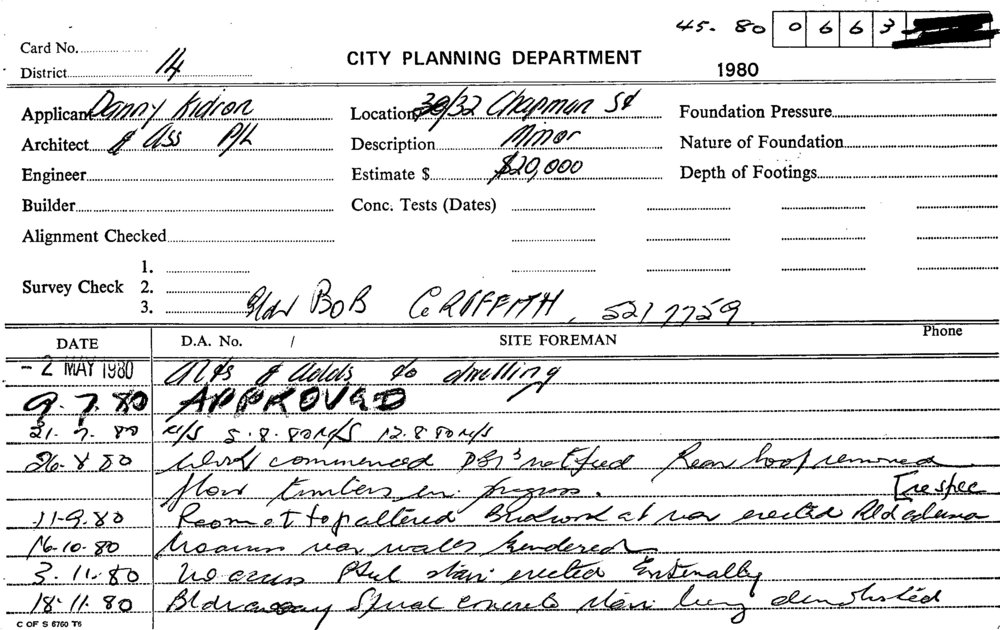 45. 80 0 6 6 3
Card No.
CITY PLANNING DEPARTMENT
District 14
1980
Applicant Danny Kidron
Location 30/32 Chapman St
Foundation Pressure
Architect & Ass P/L
Description Minor
Nature of Foundation
Engineer
Estimate $ $20,000
Depth of Footings
Builder
Conc. Tests (Dates)
Alignment Checked
1.
Survey Check 2.
3.
Bldr BOB GRIFFITH, 5217759
DATE D.A. No. / SITE FOREMAN Phone
- 2 MAY 1980 Alts & Adds to dwelling
9. 7. 80 APPROVED
21. 7. 80 N/S 5.8.80 N/S 12.8.80 N/S
26.8.80 Work commenced notified Rear roof removed
floor timbers in progress. [respec
11-9.80 Room at top altered Brickwork at rear erected
16-10-80 rear walls rendered
3.11.80 No access Steel stair erected Externally
18.11.80 Bldr away Spiral concrete stair being demolished
C OF S 6760 T6